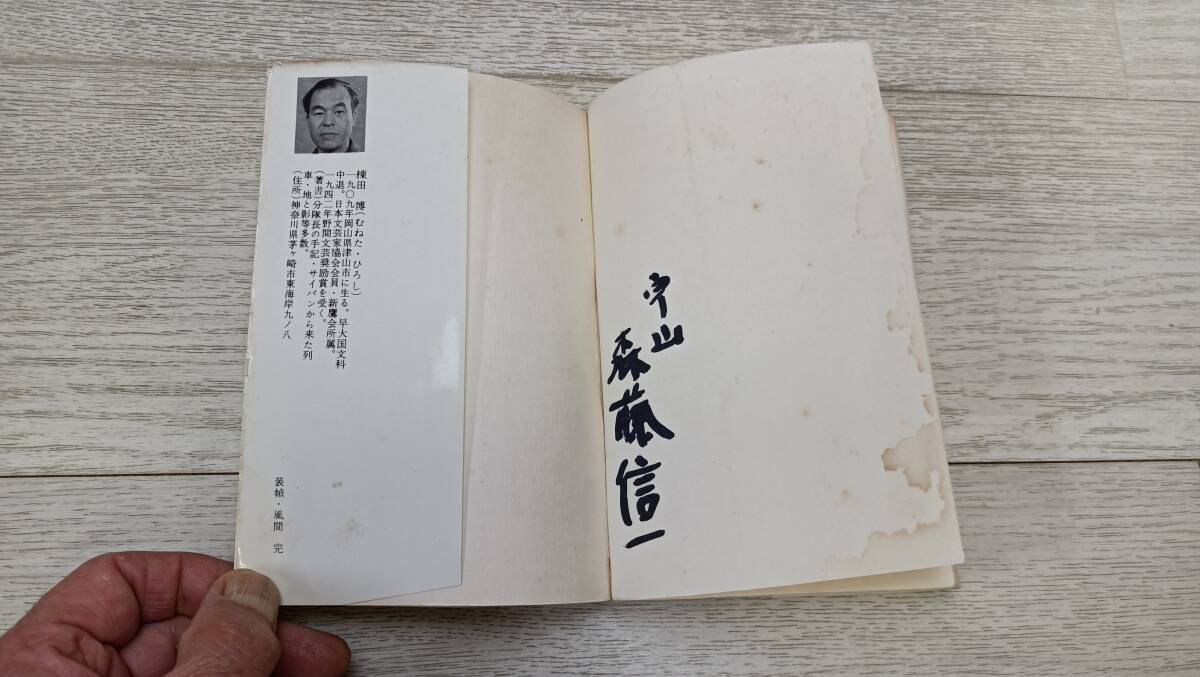 棟田　博(むねた・ひろし)
一九〇九年岡山県津山市に生る。早大国文科
中退。日本文芸家協会会員・新鷹会所属。
一九四二年野間文芸奨励賞を受く。
(著書)分隊長の手記・サイパンから来た列
車・地と影等多数。
(住所)神奈川県茅ヶ崎市東海岸九ノ八
装幀・風間　完
森藤信一